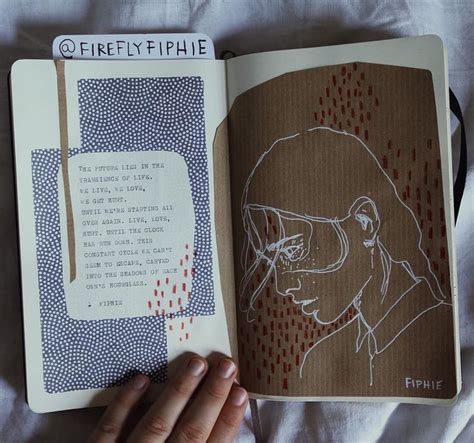 @FIREFLYFIPHIE
THE FUTURE LIES IN THE
TRANSIENCE OF LIFE.
WE LIVE, WE LOVE,
WE GET HURT.
UNTIL WE'RE STARTING ALL
OVER AGAIN. LIVE, LOVE,
HURT. UNTIL THE CLOCK
HAS RUN DOWN. THIS
CONSTANT CYCLE WE CAN'T
SEEM TO ESCAPE, CARVED
INTO THE SHADOWS OF EACH
ONE'S HOURGLASS.
- FIPHIE
FIPHIE